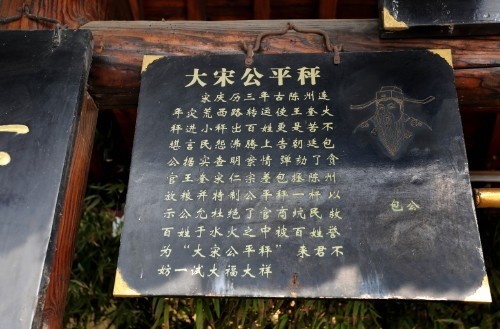 大宋公平秤
宋庆历三年古陈州连
年灾荒西路转运使王奎大
秤进小秤出百姓更是苦不
堪言民怨沸腾上告朝廷包
公据实查明尝情弹劾了贪
官王奎求仁宗差包拯陈州
放粮并特制公平秤一杆以
示公允杜绝了官商坑民救
百姓于水火之中被百姓誉
为“大宋公平秤”来君不
妨一试大福大祥
包公